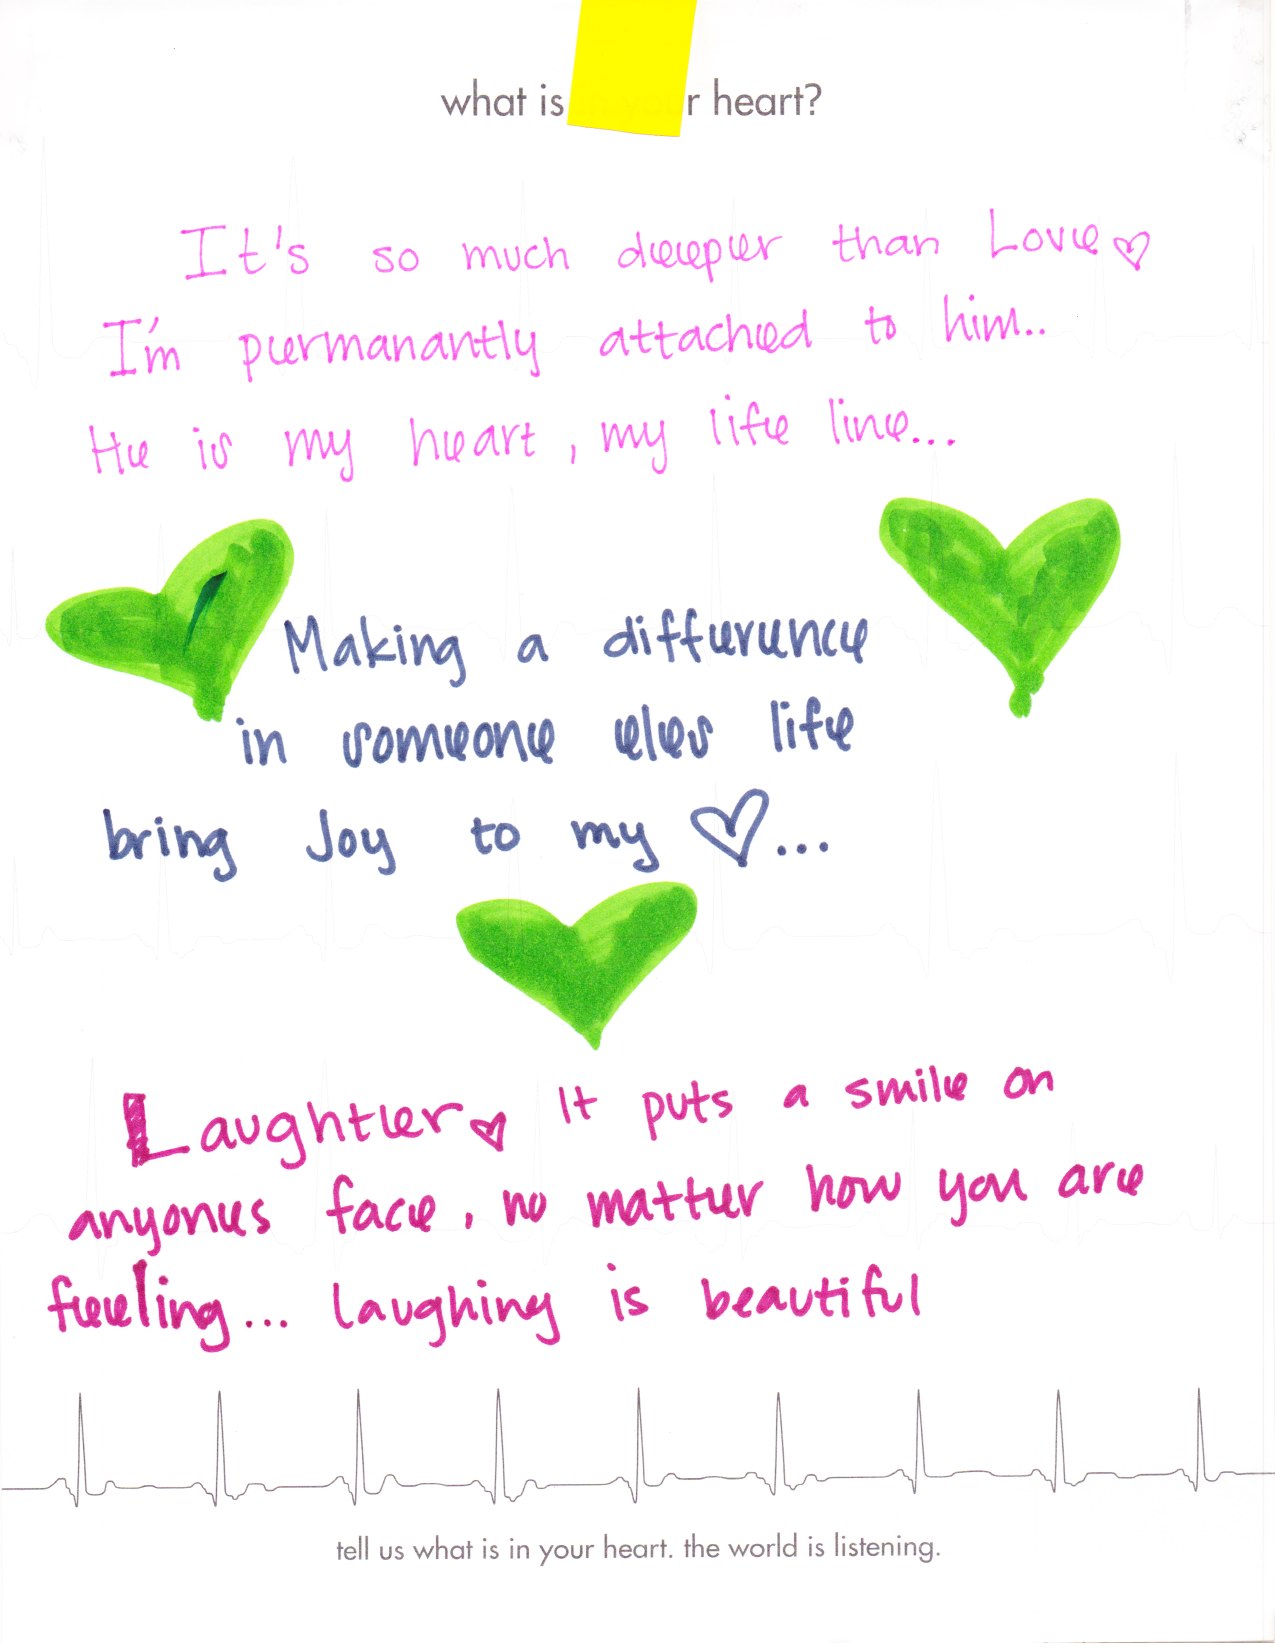 what is your heart?
It's so much deeper than Love
I'm permanantly attached to him..
He is my heart, my life line...
Making a difference
in someone eles life
bring Joy to my ♡...
Laughter It puts a smile on
anyones face, no matter how you are
feeling... laughing is beautiful
tell us what is in your heart. the world is listening.